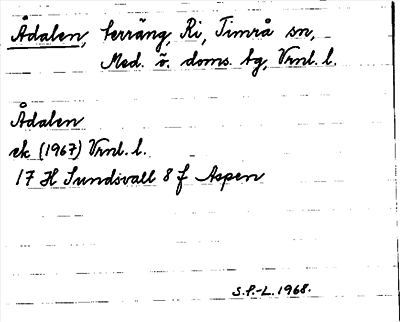 Ådalen, terräng, Ri, Timrå sn,
Med. ö. doms. tg, Vrnl. l.
Ådalen
ek (1967) Vrnl. l.
17 H Sundsvall 8 f Aspen
S.P.-L. 1968.